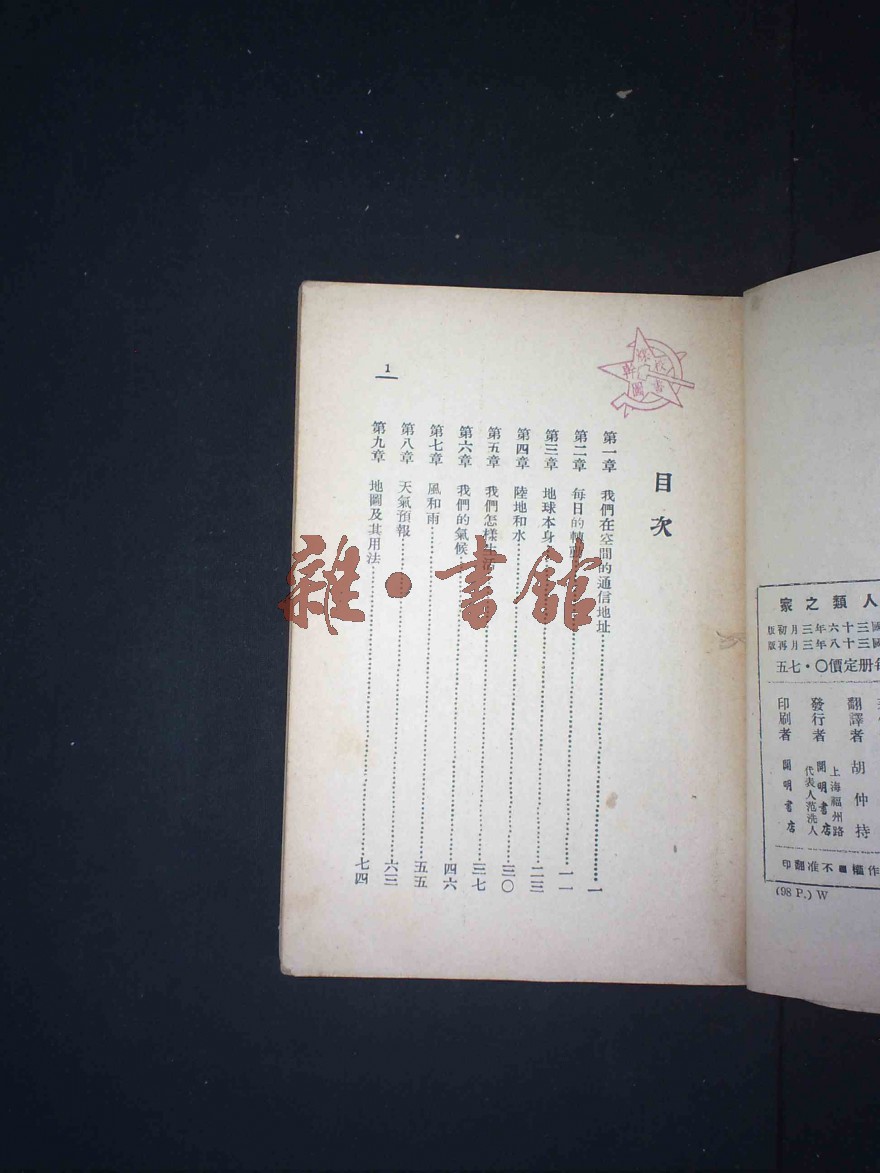 目次
第一章 我們在空間的通信地址……一
第二章 每日的轉動……一一
第三章 地球本身……二三
第四章 陸地和水……三〇
第五章 我們怎樣生活……三七
第六章 我們的氣候……四六
第七章 風和雨……五五
第八章 天氣預報……六三
第九章 地圖及其用法……七四
1
校
圖書
雜·書館
家之類人
版初月三年六十三國
版再月三年八十三國
五七·〇價定册
翻譯者 胡仲持
發行者 上海福州路 開明書店 代表人范洗人
印刷者 開明書店
印翻准不■權作
(98 P.) W